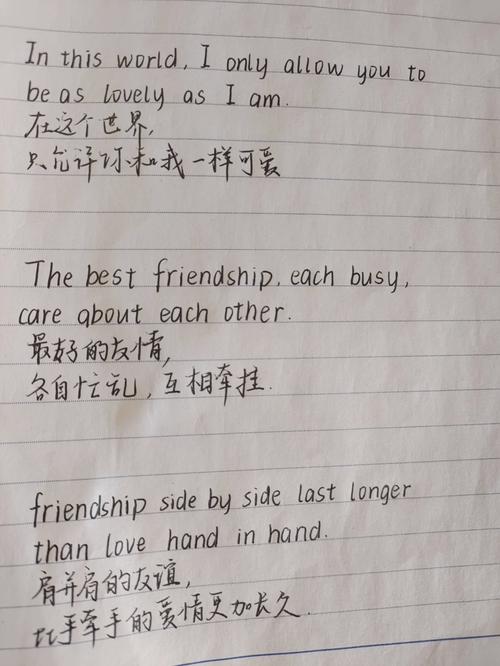 In this world, I only allow you to
be as lovely as I am.
在这个世界,
只允许你和我一样可爱
The best friendship, each busy,
care about each other.
最好的友情,
各自忙乱,互相牵挂.
friendship side by side last longer
than love hand in hand.
肩并肩的友谊,
比手牵手的爱情更加长久.